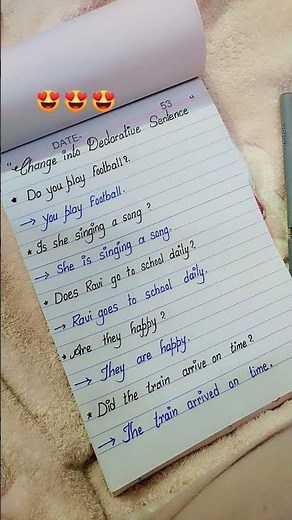 😍😍😍
53
DATE-
"Change into Declarative Sentence"
* Do you play football?.
→ You play Football.
* Is she singing a song?
→ She is singing a song.
* Does Ravi go to school daily?
→ Ravi goes to school daily.
* Are they happy?
→ They are happy.
* Did the train arrive on time?
→ The train arrived on time.